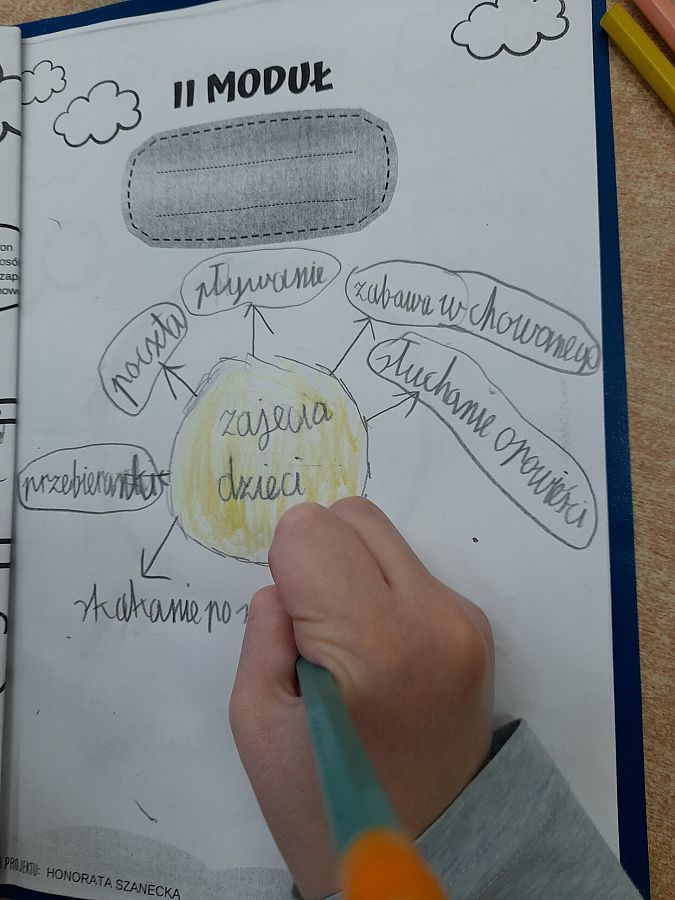 II MODUŁ
pływanie
zabawa w chowanego
poczta
słuchanie opowieści
zajęcia
dzieci
przebieranki
skakanie po
PROJEKTU: HONORATA SZANECKA